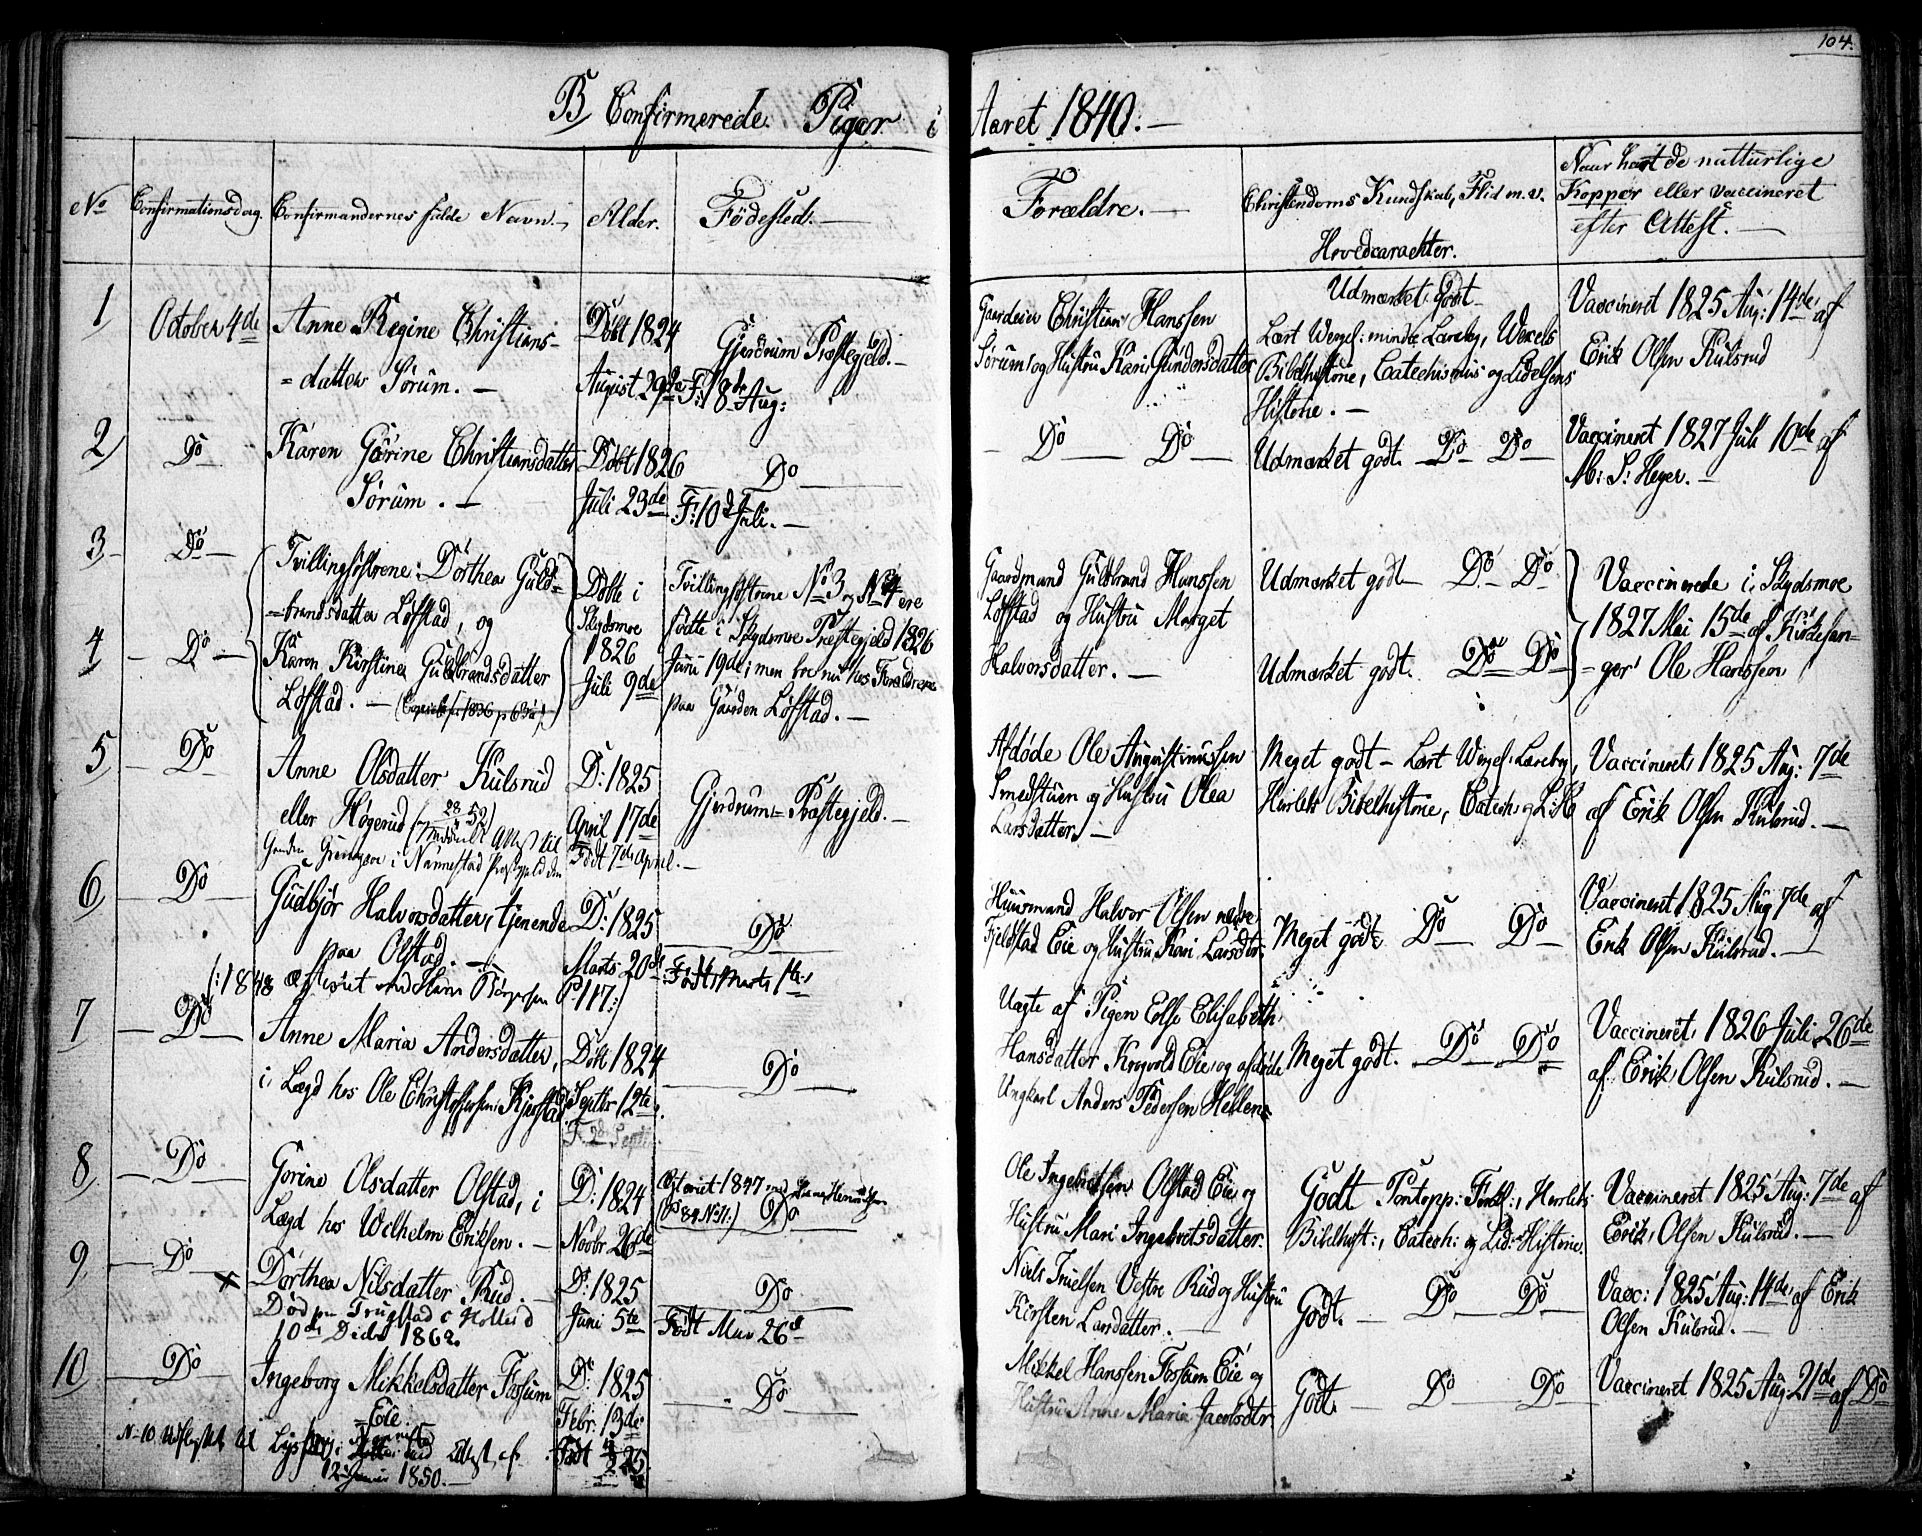 104.
B, Confirmerede Piger i Aaret 1840. —
No
Confirmationsdag.
Confirmandernes fulde Navn. —
Alder.
Fødested. —
Forældre. —
Christendoms Kundskab, Flid m. v.
Hovedcarachter.
Naar havt de natturlige
Koppor eller vaccineret
efter Attest. —
1
October 4de
Anne Regine Christians-
=datter Sørum. —
Døbt 1824
August 29de
Gjerdrum Præstegjeld. —
F: 18de Aug:
Gaardeier Christian Hanssen
Sørum og Hustru Kari Gundersdatter
Udmærket Godt
Lært Wexels mindre Lærebog, Wexels
Bibelhistorie, Catechismus og Lidelsens
Historie. —
Vaccineret 1825 Aug: 14de af
Erik Olsen Kulsrud
2
Do
Karen Gørine Christiansdatter
Sørum. —
Døbt 1826
Juli 23de
Do
F: 10de Juli. —
Do Do
Udmærket godt. Do Do
Vaccineret 1827 Juli 10de af
M: S: Heyer. —
3
Do
Tvillingsøstrene: Dorthea Guld-
=brandsdatter Løfstad, og
4
Do
Karen Kirstine Guldbrandsdatter
Løfstad. —
Døbte i
Skydsmoe
1826
Juli 9de
Tvillingsøstrene No 3 og No 4 ere
fødte i Skydsmoe Præstegjeld 1826
Juni 19de; men boe nu hos Forældrene
paa Gaarden Løfstad. —
Gaardmand Guldbrand Hanssen
Løfstad og Hustru Marget
Halvorsdatter. —
Udmærket godt Do Do
Udmærket godt. Do Do
Vaccinerede i Skydsmoe
1827 Mai 15de af Kirkesan-
=ger Ole Hanssen
5
Do
Anne Olsdatter Kulsrud
eller Høgerud
D: 1825
April 17de
Født 7de April. —
Gjerdrum Præstegjeld. —
Afdøde Ole Augustinussen
Smedstuen og Hustru Olea
Larsdatter. —
Meget godt — Lært Wexels Lærebog,
Herslebs Bibelhistorie, Catech: og Lid: H:
Vaccineret 1825 Aug: 7de
af Erik Olsen Kulsrud. —
6
Do
Gudbjør Halvorsdatter, tjenende
paa Olstad. —
D: 1825
Marts 20de
Do
Født Marts 1te
Huusmand Halvor Olsen nedre
Fjeldstad Eie og Hustru Kari Larsdtr.
Meget godt Do Do
Vaccineret 1825 Aug 7de af
Erik Olsen Kulsrud. —
(: 1848 P 117:)
7
Do
Anne Maria Andersdatter,
i Lægd hos Ole Christophersen Kjerstad
Døbt 1824
Septbr 12te
F. 2d Septbr.
Do
Uægte af Pigen Else Elisabeth
Hansdatter Krogvold Eie og afdøde
Ungkarl Anders Pedersen Hellen
Meget godt. Do Do
Vaccineret 1826 Juli 26de
af Erik Olsen Kulsrud. —
8
Do
Gorine Olsdatter Olstad, i
Lægd hos Welhelm Eriksen. —
D: 1824
Novbr 26de
Do
Ole Ingebretsen Olstad Eie og
Hustru Mari Ingebretsdatter.
Godt Pontopp: Forkl:, Herslebs
Bibelhist:, Catech: og Lid: Historie.
Vaccineret 1825 Aug: 7de af
Erik Olsen Kulsrud. —
9
Do
Dorthea Nilsdatter Rud. —
D: 1825
Juni 5te
Do
Født Mai 26d
10de Decbr 1862.
Niels Truelsen Vestre Rud og Hustru
Kirsten Larsdatter. —
Godt. Do Do
Vacc: 1825 Aug: 14de af Erik
Olsen Kulsrud. —
10
Do
Ingeborg Mikkelsdatter Fossum
Eie.
D: 1825
Febr: 13de
Do
Mikkel Hanssen Fossum Eie og
Hustru Anne Maria Jacobsdtr
Godt. Do Do
Vaccineret 1825 Aug 21de af Do
No 10 Udflyttet til
1850. —